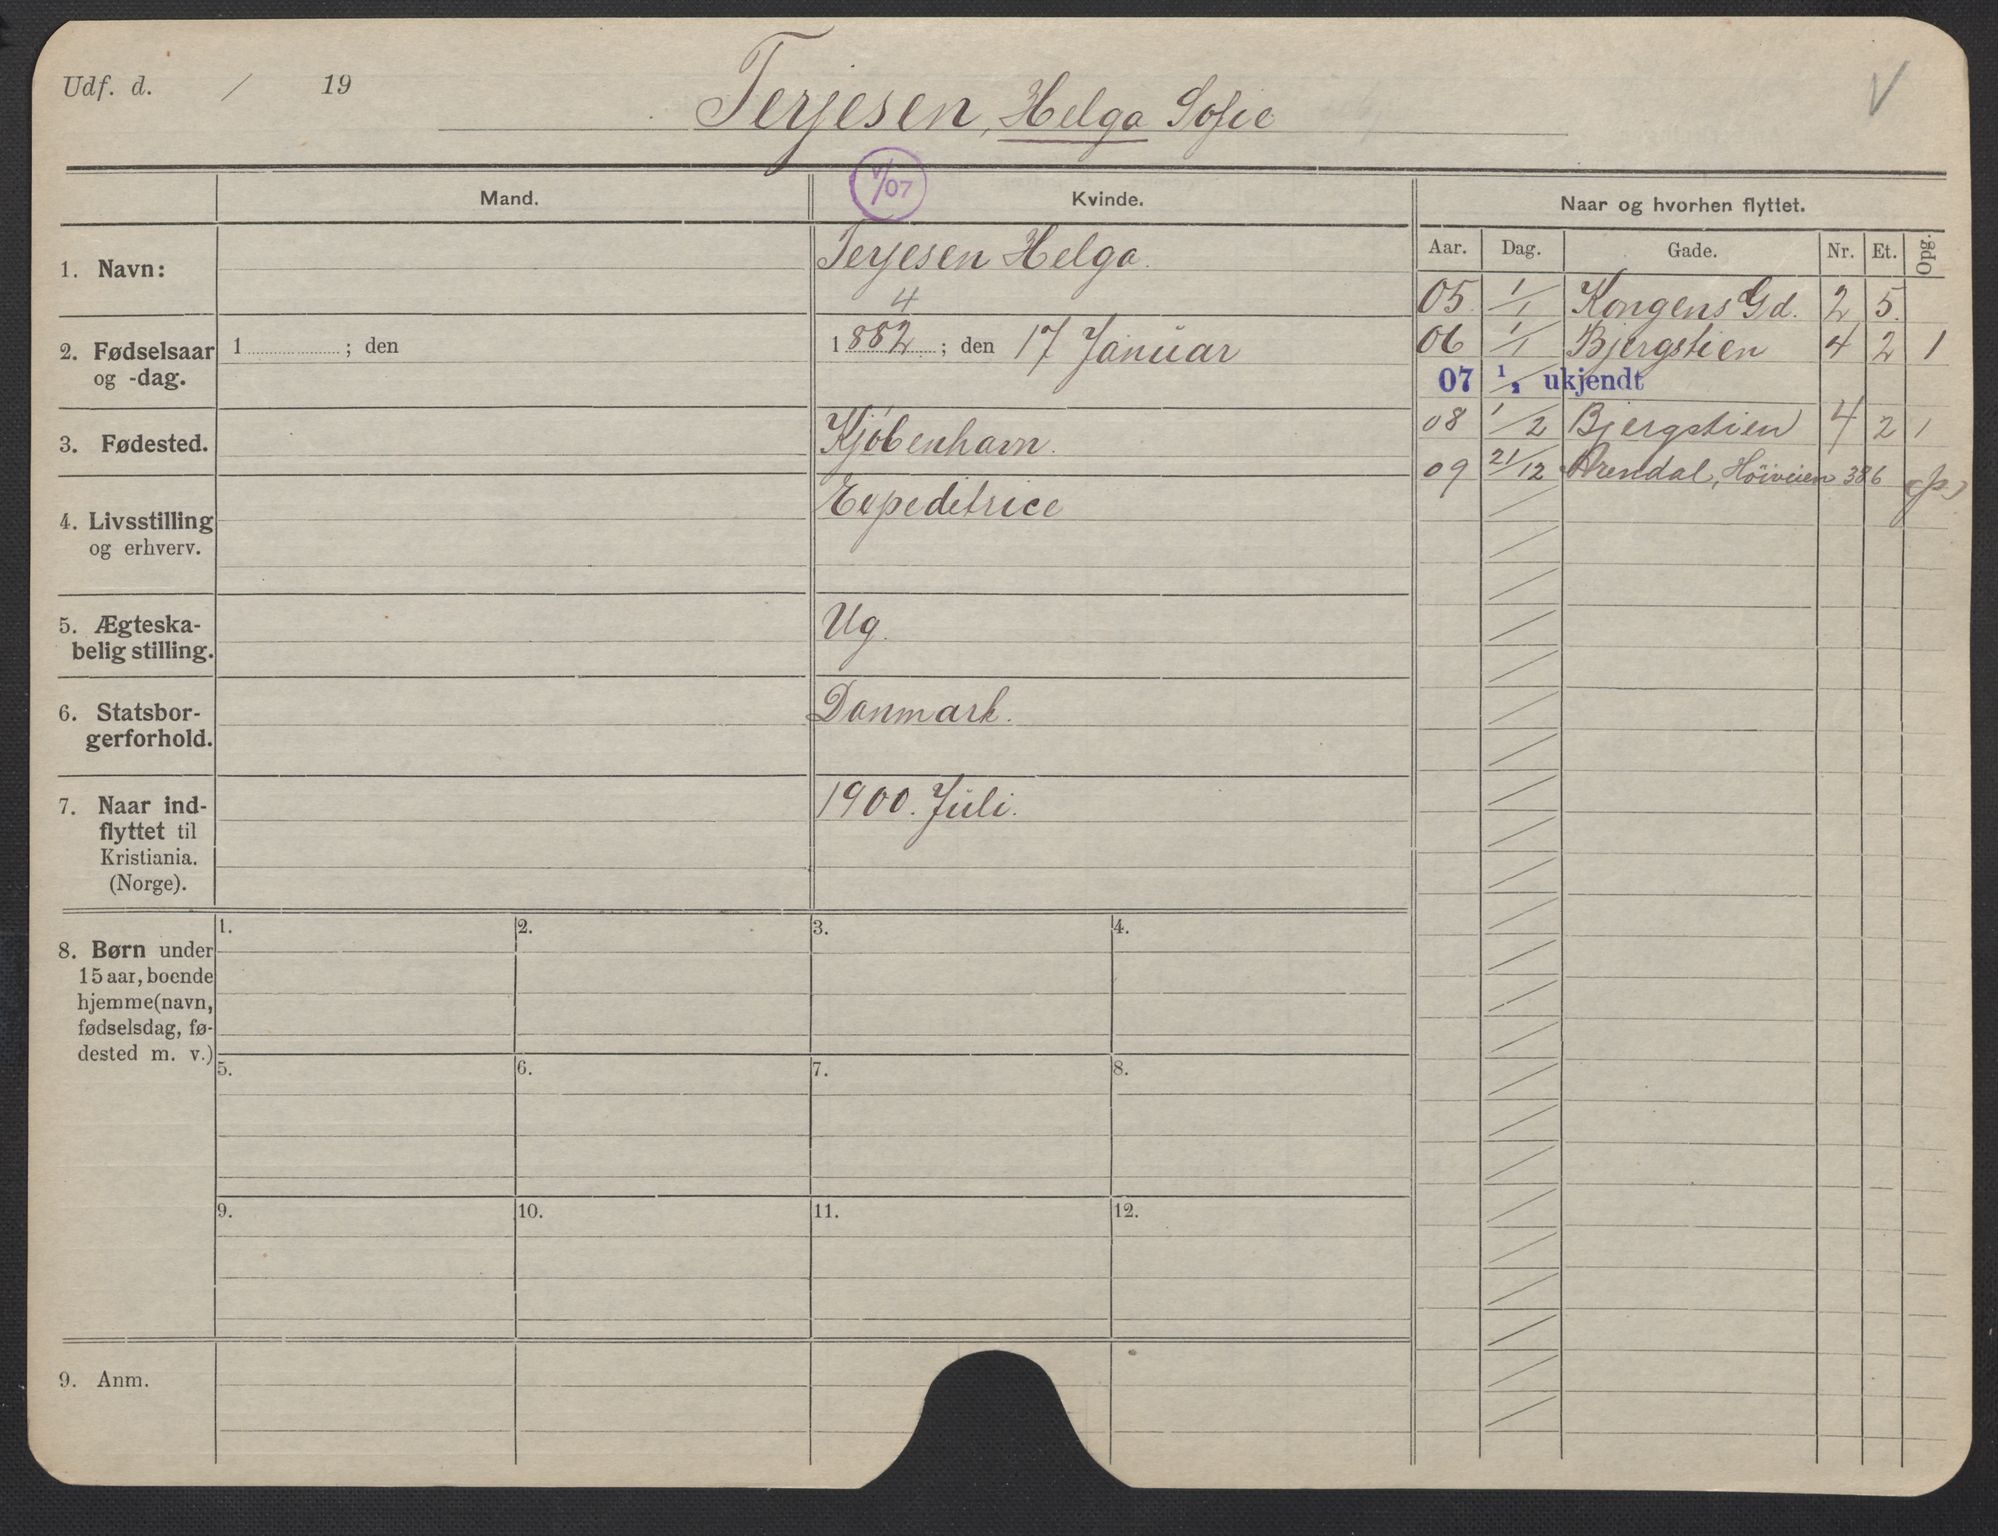 Udf. d. / 19
Terjesen, Helga Sofie
V
V/07
Mand.
Kvinde.
Naar og hvorhen flyttet.
Aar. Dag. Gade. Nr. Et. Opg.
1. Navn:
Terjesen Helga.
05. 1/1 Kongens Gd. 2 5.
06 1/1 Bjergstien 4 2 1
07 1/2 ukjendt
08 1/2 Bjergstien 4 2 1
09 21/12 Arendal, Høiveien 386
4
2. Fødselsaar
og -dag.
1 ; den
1882 ; den 17 Januar
3. Fødested.
Kjøbenhavn.
4. Livsstilling
og erhverv.
Expeditrice
5. Ægteska-
belig stilling.
Ug.
6. Statsbor-
gerforhold.
Danmark.
7. Naar ind-
flyttet til
Kristiania.
(Norge).
1900. Juli.
8. Børn under
15 aar, boende
hjemme (navn,
fødselsdag, fø-
dested m. v.)
1. 2. 3. 4.
5. 6. 7. 8.
9. 10. 11. 12.
9. Anm.